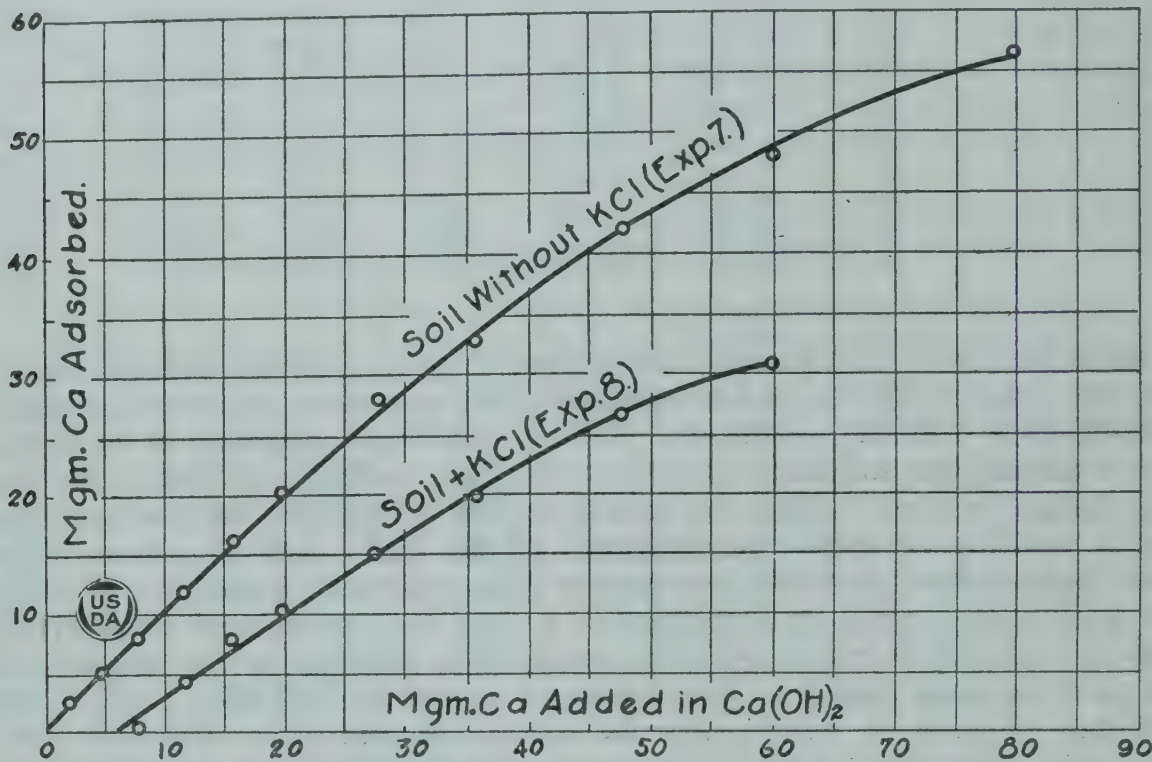 60
50
40
30
20
10
Mgm. Ca Adsorbed.
Soil Without KCl (Exp.7.)
Soil + KCl (Exp.8.)
US
DA
Mgm. Ca Added in Ca(OH)₂
0 10 20 30 40 50 60 70 80 90